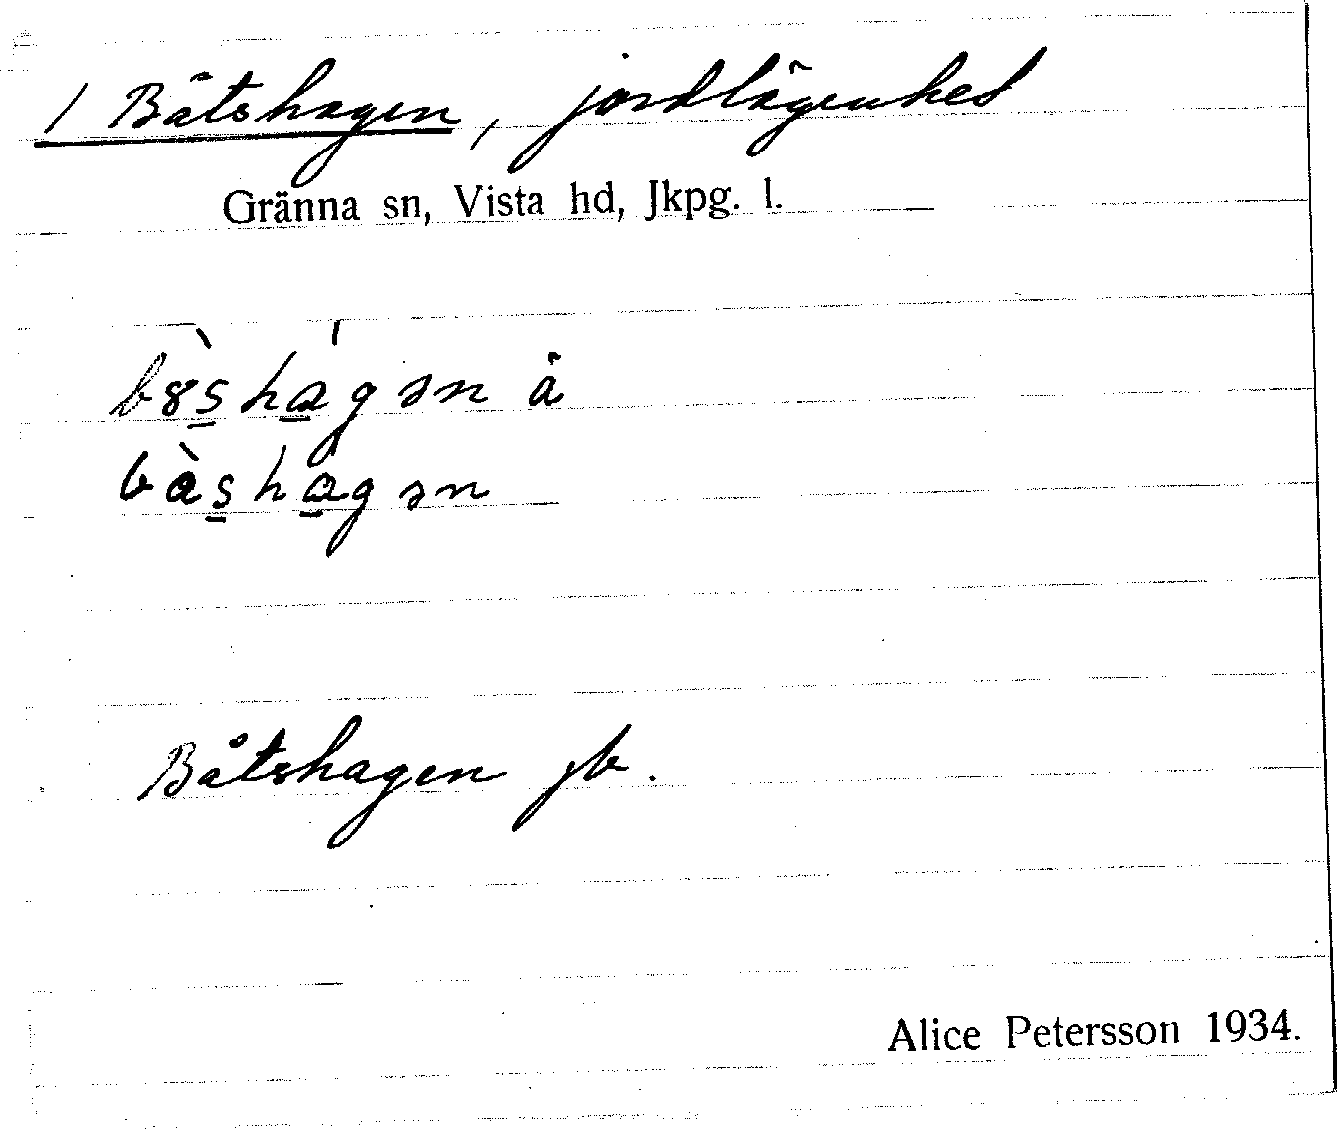 1 Båtshagen, jordlägenhet
Gränna sn, Vista hd, Jkpg. l.
b8̀s̠ha̠gən å
bàs̠ha̠gən
Båtshagen jb.
Alice Petersson 1934.